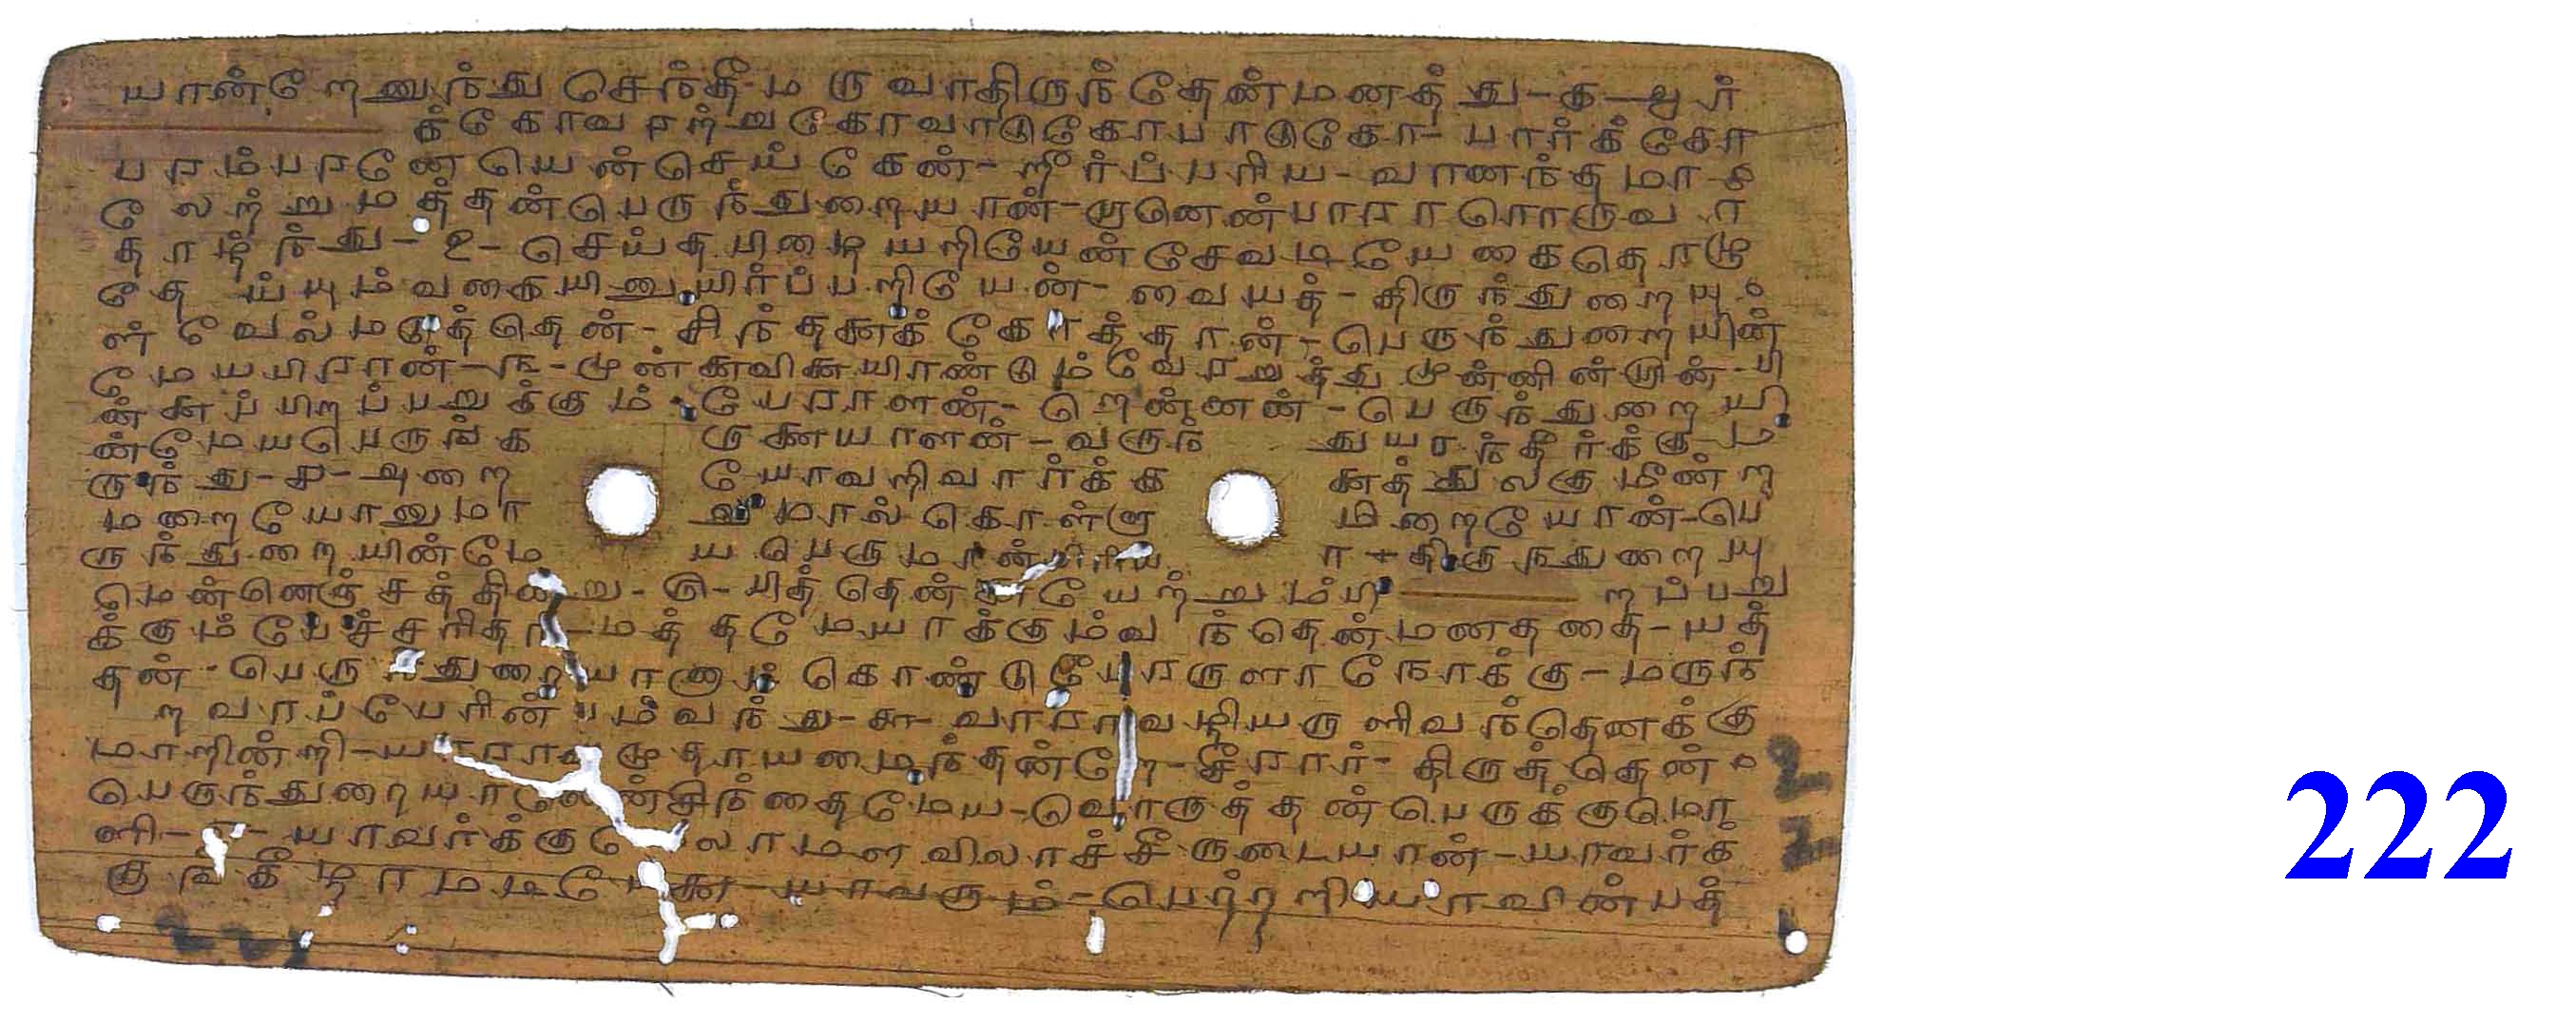 யான்றேனுந்து செந்தீ-ம ருவாதிருந் தேன்மனத்து-க-ஆர்
க்கோவரற்றுகோவாடுகோபாடுகோ-பார்க்கோ
பரம்பரனேயென்செய்கேன்-றீர்ப்பரிய-வானந்தமா
லேற்றுமத்தன்பெருந்துறையான்-றானென்பாராரொருவர்
தாழ்ந்து-உ-செய்தபிழையறியேன்சேவடியேகைதொழு
தே ய்யும்வகையினுயிர்ப்பறியேன்-வையத்-திருந்துறையு
ள் வேல்மடுத்தென்-சிந்தனைக்கே கோத்தான்-பெருந்துறையின்
மேயபிரான்-ந-முன்னைவினையிரண்டும்வேரறுத்துமுன்னின்றான்-பி
ன்னைப்பிறப்பறுக்கும்-பேராளன்-றென்னன்-பெருந்துறையி
ன்மேயபெருங்க ருணையாளன்-வருந் துயரந்தீர்க்கு-ம
ருந்து-ச-அறை யோவறிவார்க்க னைத்துலகுமீன்ற
மறையோனுமா லுமால்கொள்ளு மிறையோன்-பெ
ருந்துறையின்மே யபெருமான்பிரிய ா-திருந்துறையு
மென்னெஞ்சத்தின்று-ரு-பித்தென் னையேற்றும்பி றப்பறு
க்கும்பேச்சரிதா-மத்தமேயாக்கும்வ ந்தென்மனதகதை-யத்
தன்-பெருந்துறையானாட் கொண்டுபேரருளா நோக்கு-மருந்
றவாப்பேரின்பம்வந்து-சு-வாராவழியருளிவந்தெனக்கு
மாறின்றி-யாராவமுதாயமைந்தன்றே-சீரார்-திருத்தென்
பெருந்துறையானென்சிந்தைமேய-வொருத்தன்பெருக்குமொ
ளி-எ-யாவர்க்குமேலாமளவிலாச்சீருடையான்-யாவர்க்
குங்கீழாமடியேனை-யாவரும்-பெற்றறியாவின்பத்
222